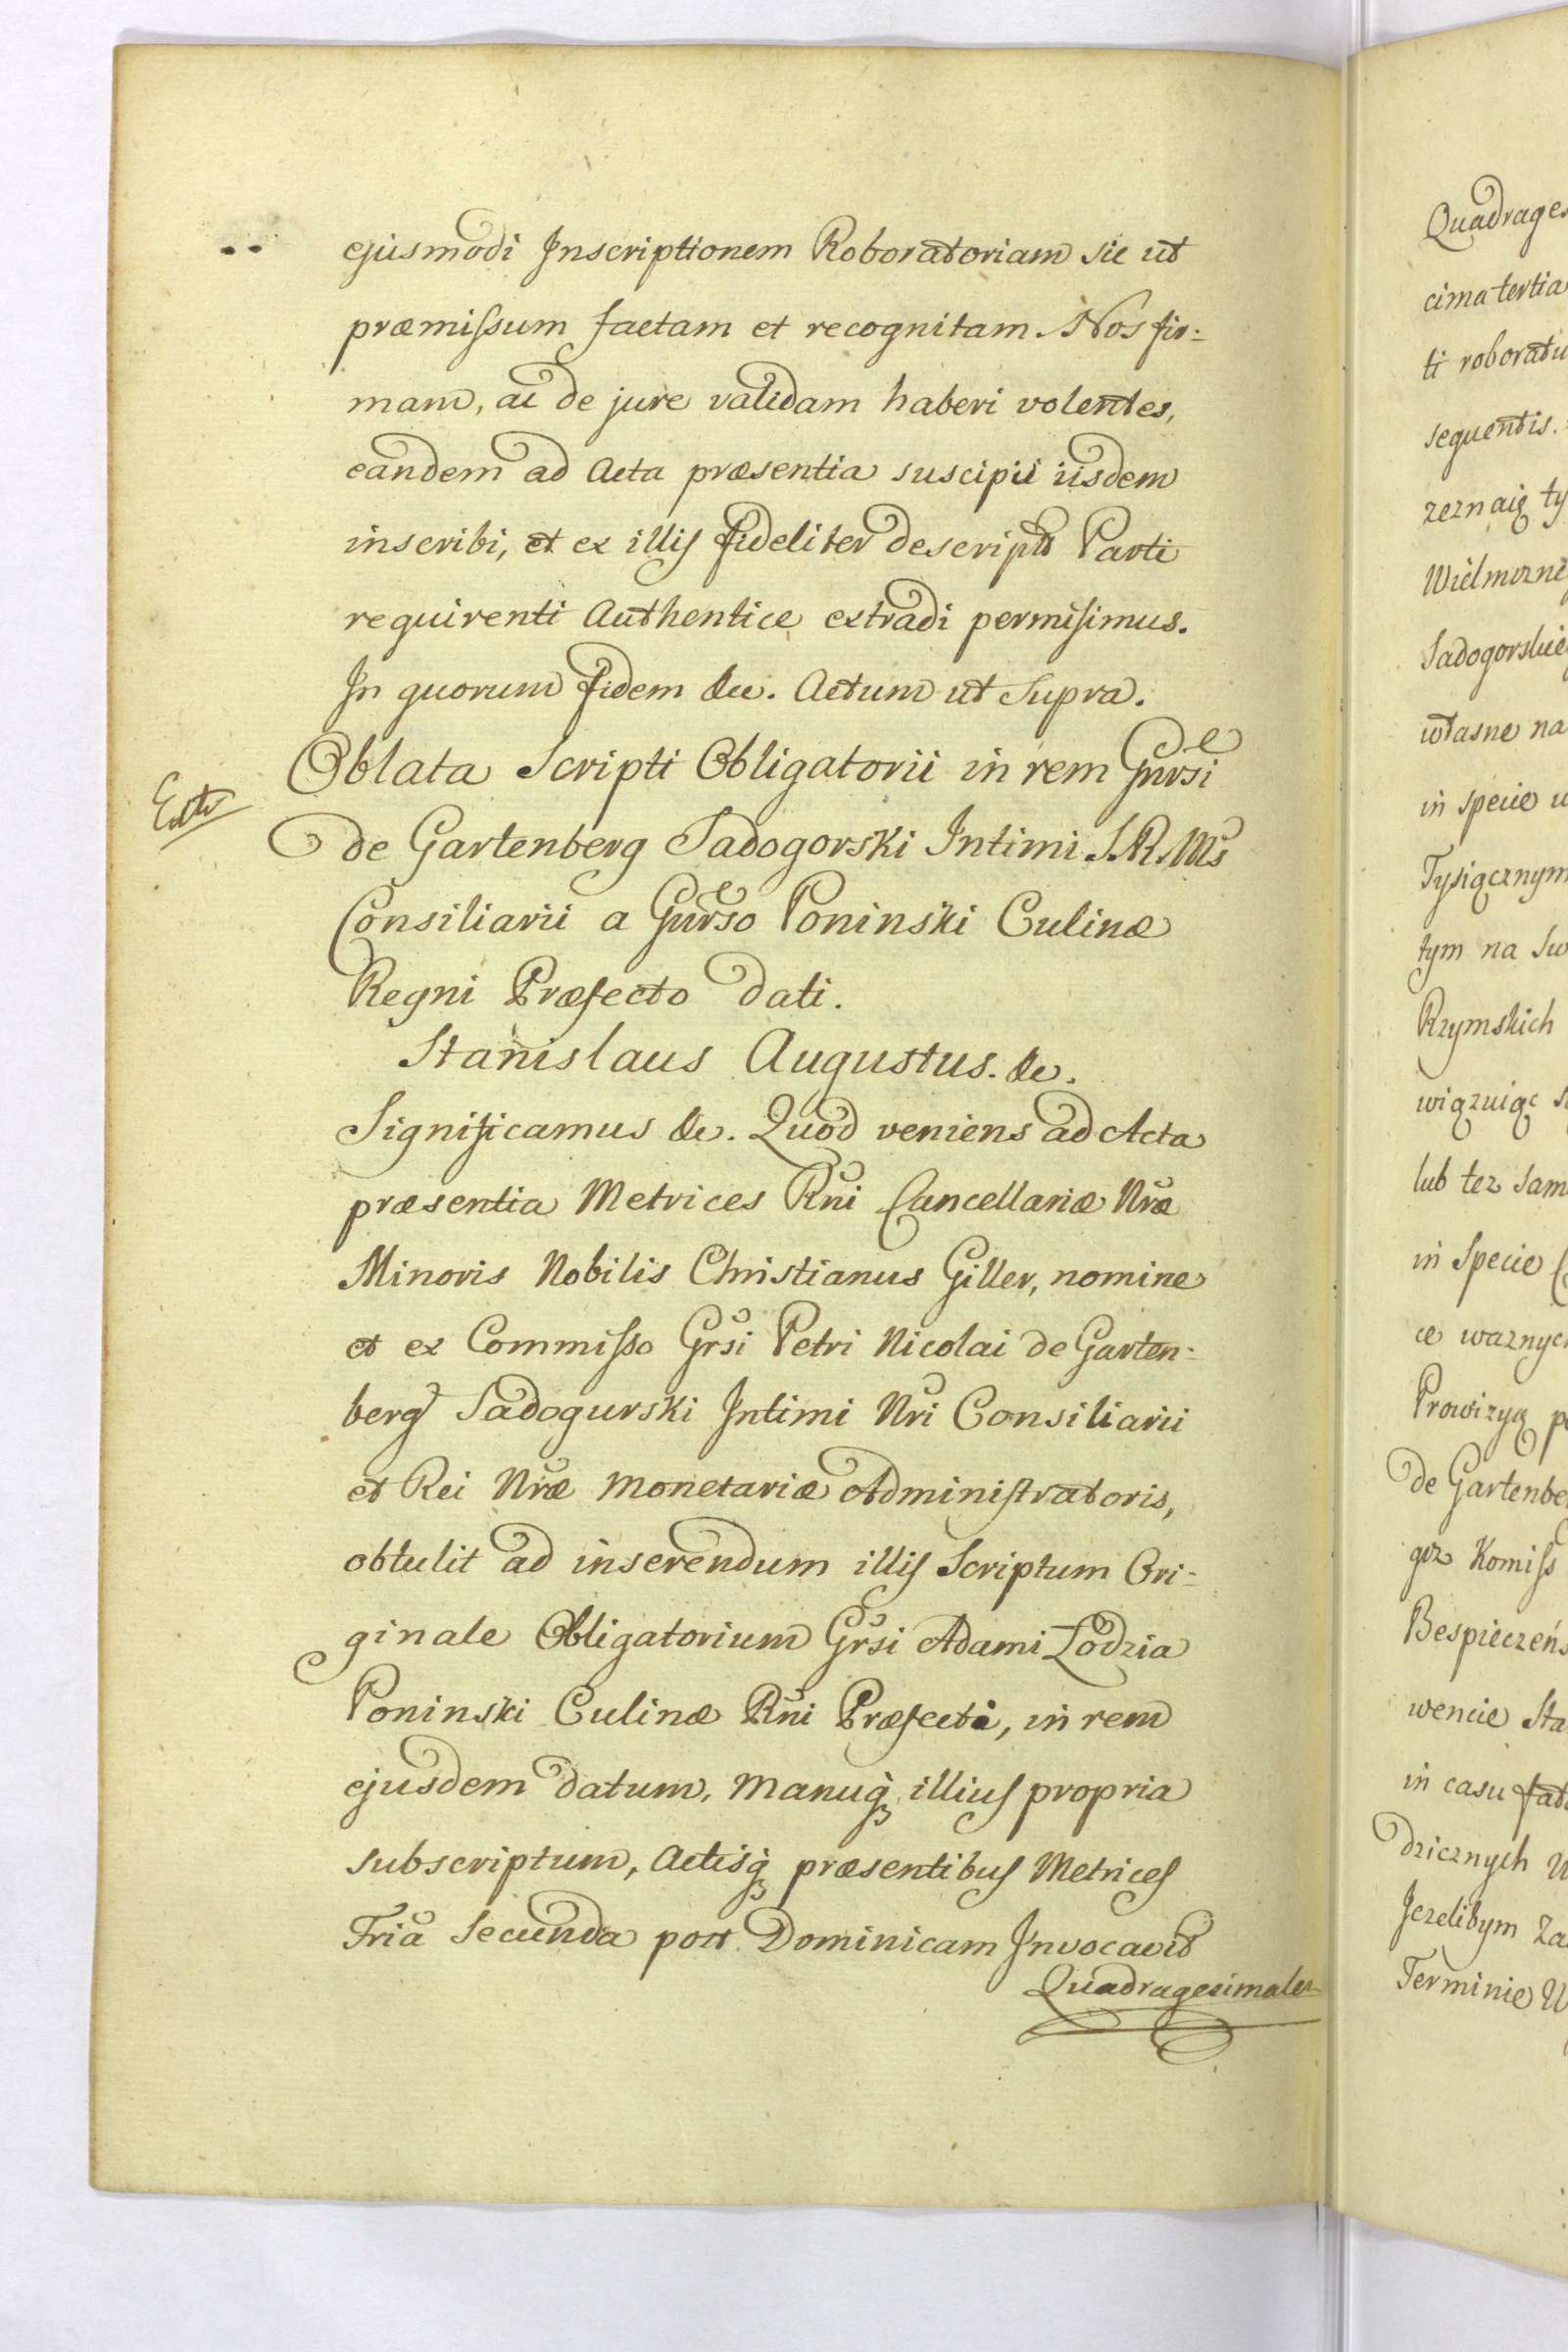 ejusmodi Inscriptionem Roboratoriam sic ut
præmissum factam et recognitam. Nos fir-
mam, ac de jure validam haberi volentes,
eandem ad Acta præsentia suscipii iisdem
inscribi, et ex illis fideliter descript Parti
requirenti Authentice extradi permisimus.
In quorum fidem &c. Actum ut Supra.
Oblata Scripti Obligatorii in rem Gnrsi
de Gartenberg Sadogorski Intimi S.R.Ms
Consiliarii a Gnrso Poninski Culinæ
Regni Præfecto dati.
Stanislaus Augustus. &c.
Significamus &c. Quod veniens ad Acta
præsentia Metrices Rni Cancellariæ Nræ
Minoris Nobilis Christianus Giller, nomine
et ex Commisso Grsi Petri Nicolai de Garten-
berg Sadogurski Intimi Nri Consiliarii
et Rei Nræ Monetariæ Administratoris,
obtulit ad inserendum illis Scriptum Ori-
ginale Obligatorium Grsi Adami Lodzia
Poninski Culinæ Rni Præfecti, in rem
ejusdem datum, Manuq illius propria
subscriptum, Actisq præsentibus Metrices
Fria Secunda post Dominicam Invocavit
Quadragesimalem
Quadrages
cima tertia
ti roboratu
sequentis.
zeznaię ty
Wielmozne
Sadogorskie
własne na
in specie u
Tysiącznym
tym na Sw
Rzymskich
wiązuiąc s
lub tez Sam
in Specie
ce waznych
Prowizyą p
de Gartenbe
goz Komiss
Bespieczeńs
wencie Sta
in casu fat
dzicznych
Jezelibym Za
Terminie W